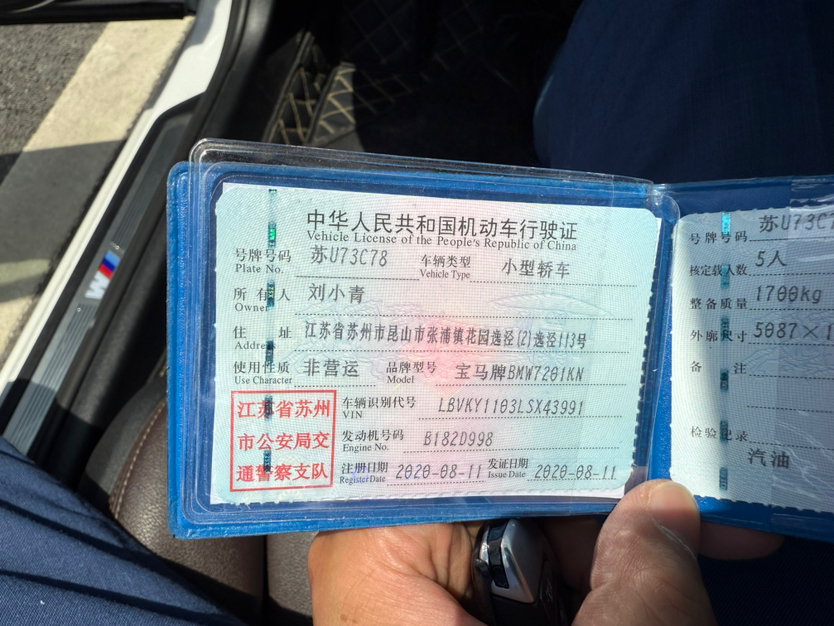 中华人民共和国机动车行驶证
Vehicle License of the People's Republic of China
号牌号码 苏U73C78 车辆类型 小型轿车
Plate No. Vehicle Type
所有人 刘小青
Owner
住址 江苏省苏州市昆山市张浦镇花园逸径(2)逸径113号
Address
使用性质 非营运 品牌型号 宝马牌BMW7201KN
Use Character Model
江苏省苏州
市公安局交
通警察支队
车辆识别代号 LBVKY1103LSX43991
VIN
发动机号码 B182D998
Engine No.
注册日期 2020-08-11 发证日期 2020-08-11
Register Date Issue Date
号牌号码 苏U73C7
核定载人数 5人
整备质量 1700kg
外廓尺寸 5087×1
备注
检验记录
汽油
M